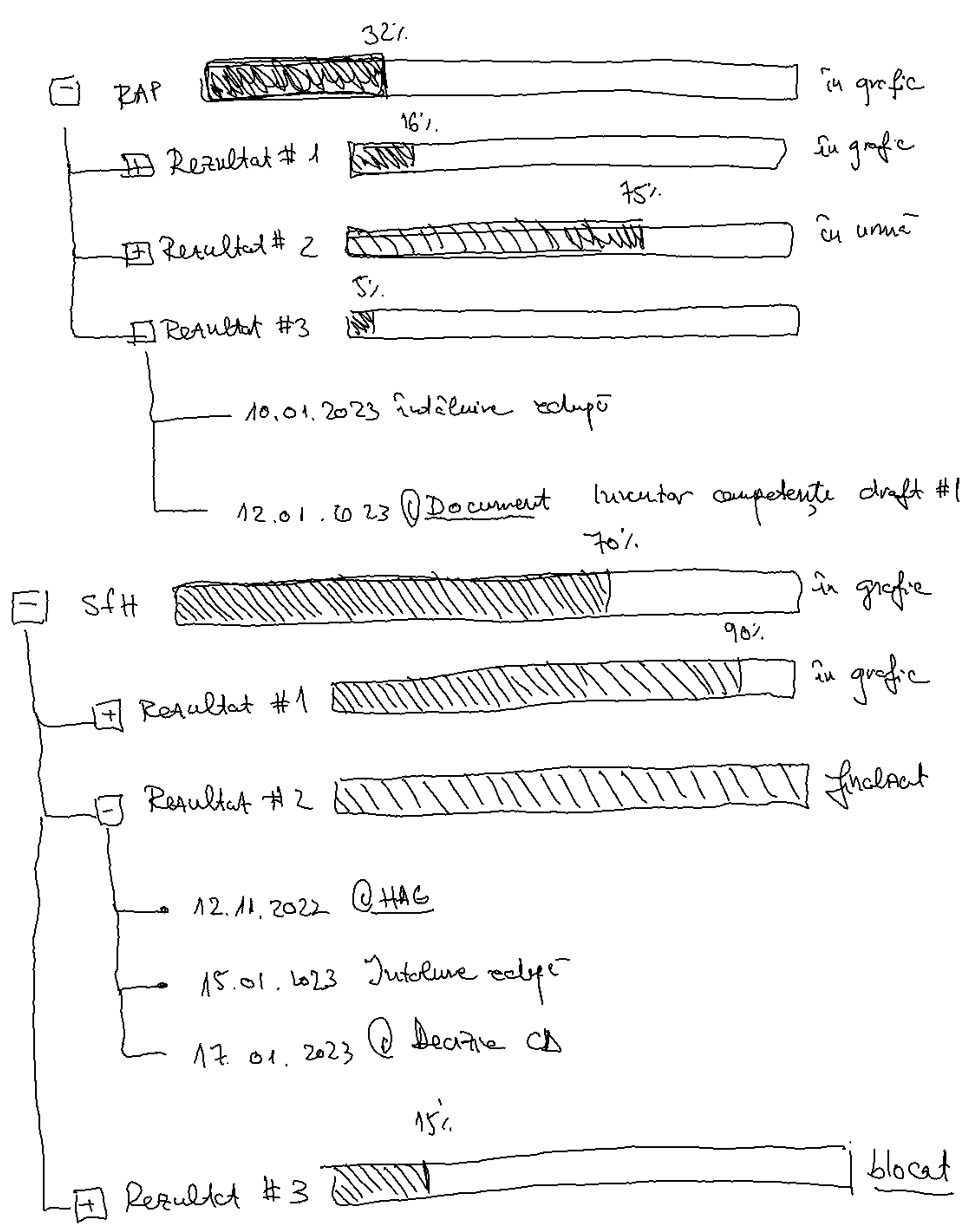 32%
RAP în grafic
16%
Rezultat # 1 în grafic
75%
Rezultat # 2 în urmă
5%
Rezultat #3
10.01.2023 întâlnire echipă
12.01.2023 @Document Inventar competențe draft #1
70%
SfH în grafic
90%
Rezultat #1 în grafic
Rezultat #2 finalizat
12.11.2022 @HAG
15.01.2023 Întâlnire echipă
17.01.2023 @ Decizie CD
15%
Rezultat #3 blocat